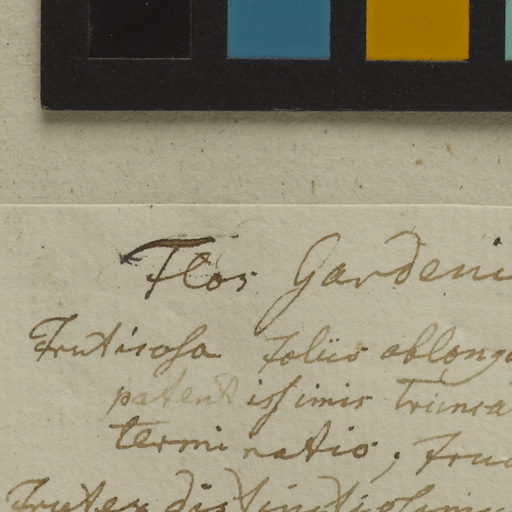 Flos Gardeni
Fruticosa foliis oblong
patentissimis trunca
terminatis; Fruc
Frutex distinctissimu